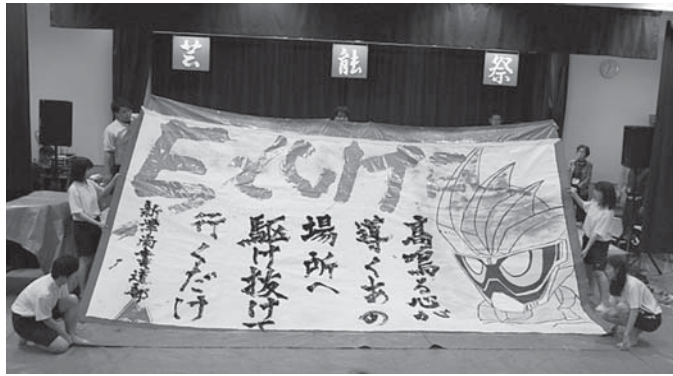 芸能祭
EXCITE
高鳴る心が
導くあの
場所へ
駆け抜けて
行くだけ
新津南書道部